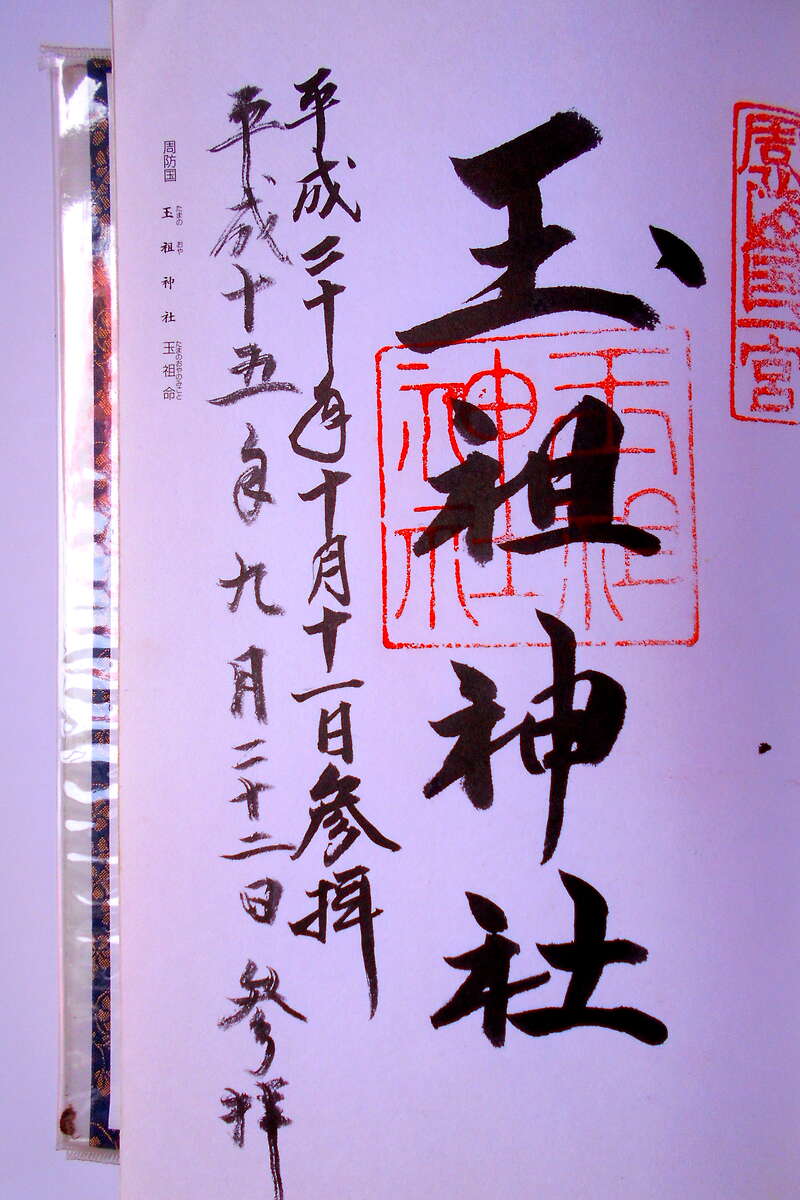 周防国一宮
玉祖神社
玉祖神社
平成二十年十月十一日参拝
平成十五年九月二十二日参拝
周防国 玉祖神社 玉祖命
たまの おや たまのおやのみこと